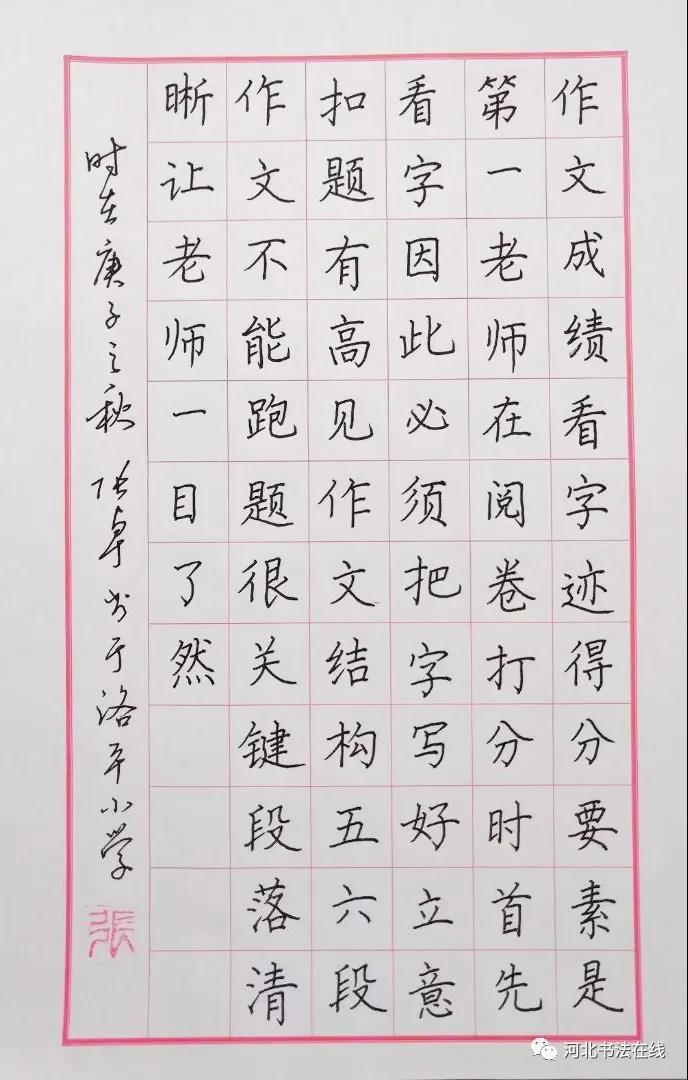 作文成绩看字迹得分要素是
第一老师在阅卷打分时首先
看字因此必须把字写好立意
扣题有高见作文结构五六段
作文不能跑题很关键段落清
晰让老师一目了然
时在庚子之秋 张卓书于洛平小学
張
河北书法在线